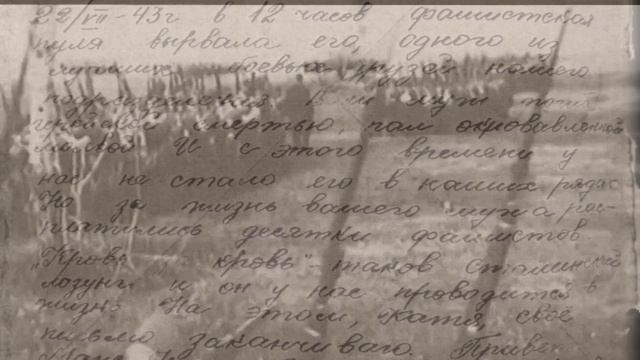 22/VII-43г в 12 часов фашистская
пуля вырвала его, одного из
лучших боевых друзей нашего
подразделения. Ваш муж погиб
геройской смертью, пал окровавленной
И с этого времени у
нас не стало его в наших рядах
Но за жизнь вашего мужа рас-
платились десятки фашистов.
„Кровь за кровь" - таков сталинский
лозунг и он у нас проводится в
жизнь. На этом, Катя, своё
письмо заканчиваю. Привет